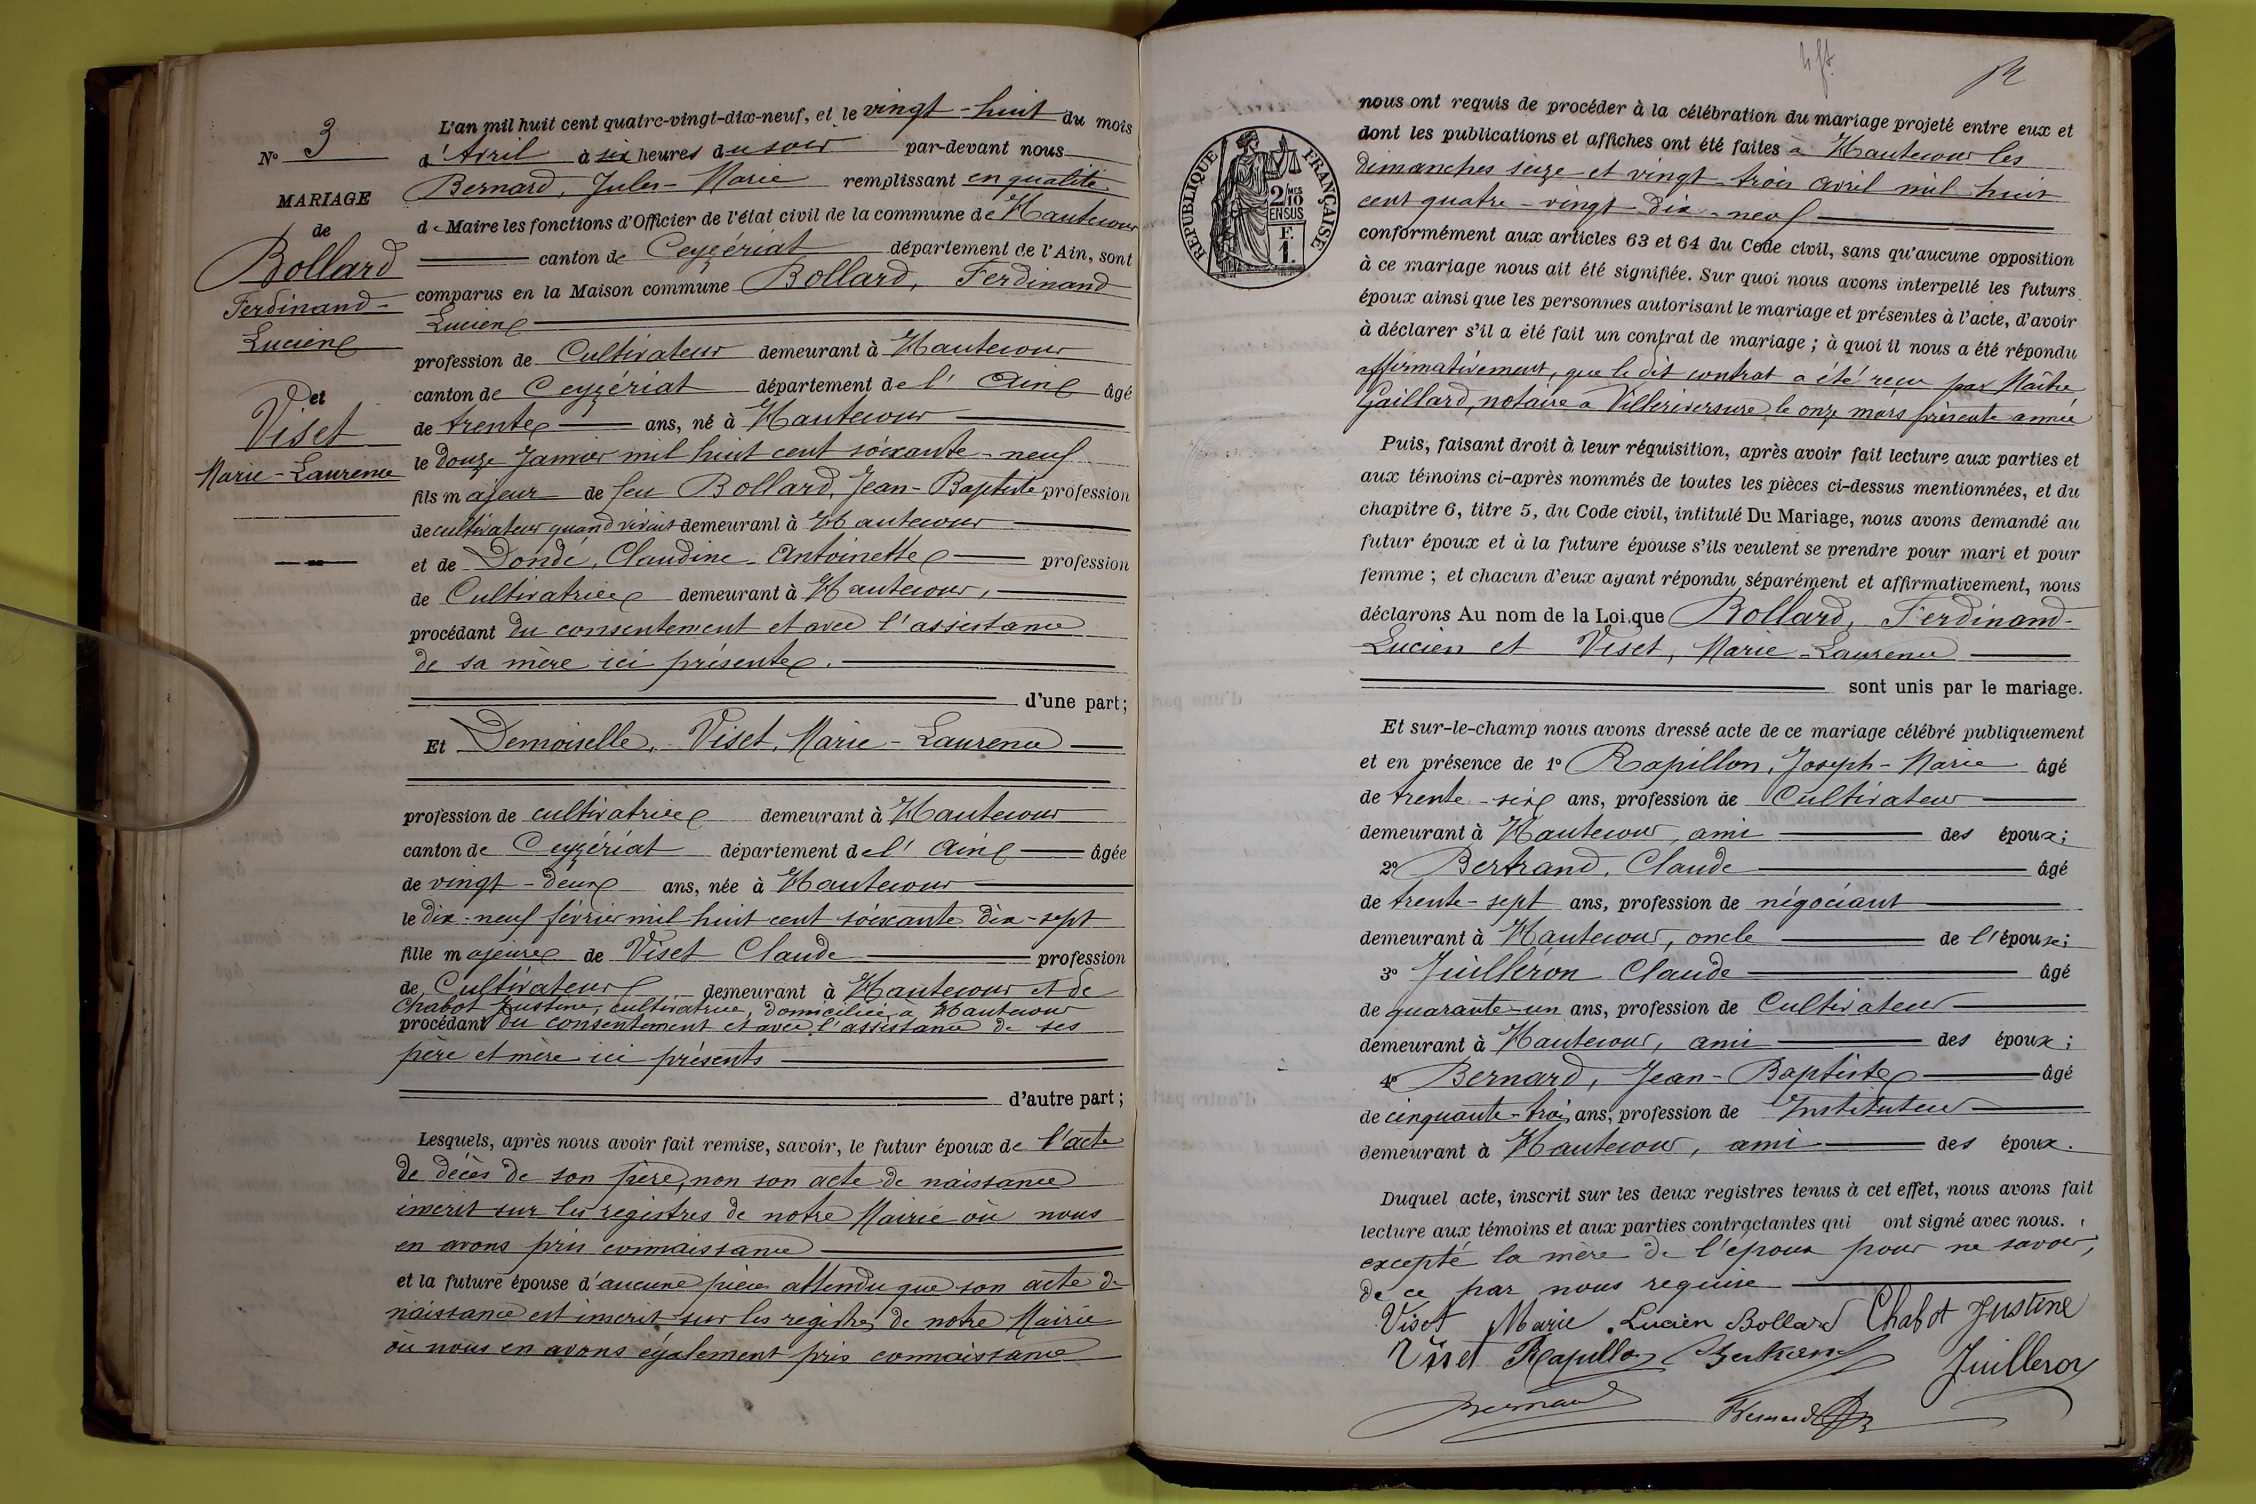 N° 3
MARIAGE
de
Bollard
Ferdinand-
Lucien
et
Viset
Marie-Laurence
L'an mil huit cent quatre-vingt-dix-neuf, et le vingt-huit du mois
d'Avril à six heures du soir par-devant nous
Bernard, Jules-Marie remplissant en qualité
de Maire les fonctions d'Officier de l'état civil de la commune de Hautecour
canton de Ceyzériat département de l'Ain, sont
comparus en la Maison commune Bollard, Ferdinand
Lucien
profession de Cultivateur demeurant à Hautecour
canton de Ceyzériat département de l'Ain âgé
de trente ans, né à Hautecour
le douze Janvier mil huit cent soixante-neuf
fils majeur de feu Bollard, Jean-Baptiste profession
de cultivateur quand vivait demeurant à Hautecour
et de Dondé, Claudine-Antoinette profession
de Cultivatrice demeurant à Hautecour,
procédant du consentement et avec l'assistance
de sa mère ici présente.
d'une part;
Et Demoiselle, Viset, Marie-Laurence
profession de cultivatrice demeurant à Hautecour
canton de Ceyzériat département de l'Ain âgée
de vingt-deux ans, née à Hautecour
le dix-neuf février mil huit cent soixante dix-sept
fille majeure de Viset Claude profession
de Cultivateur demeurant à Hautecour et de
Chabot Justine, cultivatrice, domiciliée à Hautecour
procédant du consentement et avec l'assistance de ses
père et mère ici présents
d'autre part;
Lesquels, après nous avoir fait remise, savoir, le futur époux de l'acte
de décès de son père, non son acte de naissance
inscrit sur les registres de notre Mairie où nous
en avons pris connaissance
et la future épouse d'aucune pièce attendu que son acte de
naissance est inscrit sur les registres de notre Mairie
où nous en avons également pris connaissance
RÉPUBLIQUE FRANÇAISE
2/10 MES
EN SUS
F.
1.
nous ont requis de procéder à la célébration du mariage projeté entre eux et
dont les publications et affiches ont été faites à Hautecour les
dimanches seize et vingt-trois avril mil huit
cent quatre-vingt-dix-neuf
conformément aux articles 63 et 64 du Code civil, sans qu'aucune opposition
à ce mariage nous ait été signifiée. Sur quoi nous avons interpellé les futurs
époux ainsi que les personnes autorisant le mariage et présentes à l'acte, d'avoir
à déclarer s'il a été fait un contrat de mariage; à quoi il nous a été répondu
affirmativement, que le dit contrat a été reçu par Maître
Gaillard, notaire à Villereversure le onze mars présente année
Puis, faisant droit à leur réquisition, après avoir fait lecture aux parties et
aux témoins ci-après nommés de toutes les pièces ci-dessus mentionnées, et du
chapitre 6, titre 5, du Code civil, intitulé Du Mariage, nous avons demandé au
futur époux et à la future épouse s'ils veulent se prendre pour mari et pour
femme; et chacun d'eux ayant répondu séparément et affirmativement, nous
déclarons Au nom de la Loi, que Bollard, Ferdinand-
Lucien et Viset, Marie-Laurence
sont unis par le mariage.
Et sur-le-champ nous avons dressé acte de ce mariage célébré publiquement
et en présence de 1° Rapillon, Joseph-Marie âgé
de trente-six ans, profession de Cultivateur
demeurant à Hautecour, ami des époux;
2° Bertrand, Claude âgé
de trente-sept ans, profession de négociant
demeurant à Hautecour, oncle de l'épouse;
3° Juilleron Claude âgé
de quarante-un ans, profession de Cultivateur
demeurant à Hautecour, ami des époux;
4° Bernard, Jean-Baptiste âgé
de cinquante-trois ans, profession de Instituteur
demeurant à Hautecour, ami des époux.
Duquel acte, inscrit sur les deux registres tenus à cet effet, nous avons fait
lecture aux témoins et aux parties contractantes qui ont signé avec nous.
excepté la mère de l'époux pour ne savoir,
de ce par nous requise
Viset Marie Lucien Bollard Chabot Justine
Viset Rapillon Bertrand Juilleron
Bernard Bernard